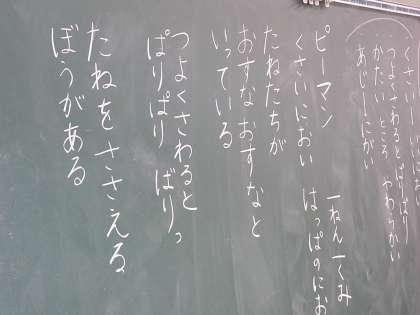 かたい ところ やわらかい
あじ にがい
ピーマン 一ねん一くみ
くさいにおい はっぱのにお
たねたちが
おすなおすなと
いっている
つよくさわると
ぱりぱり ばりっ
たねをささえる
ぼうがある